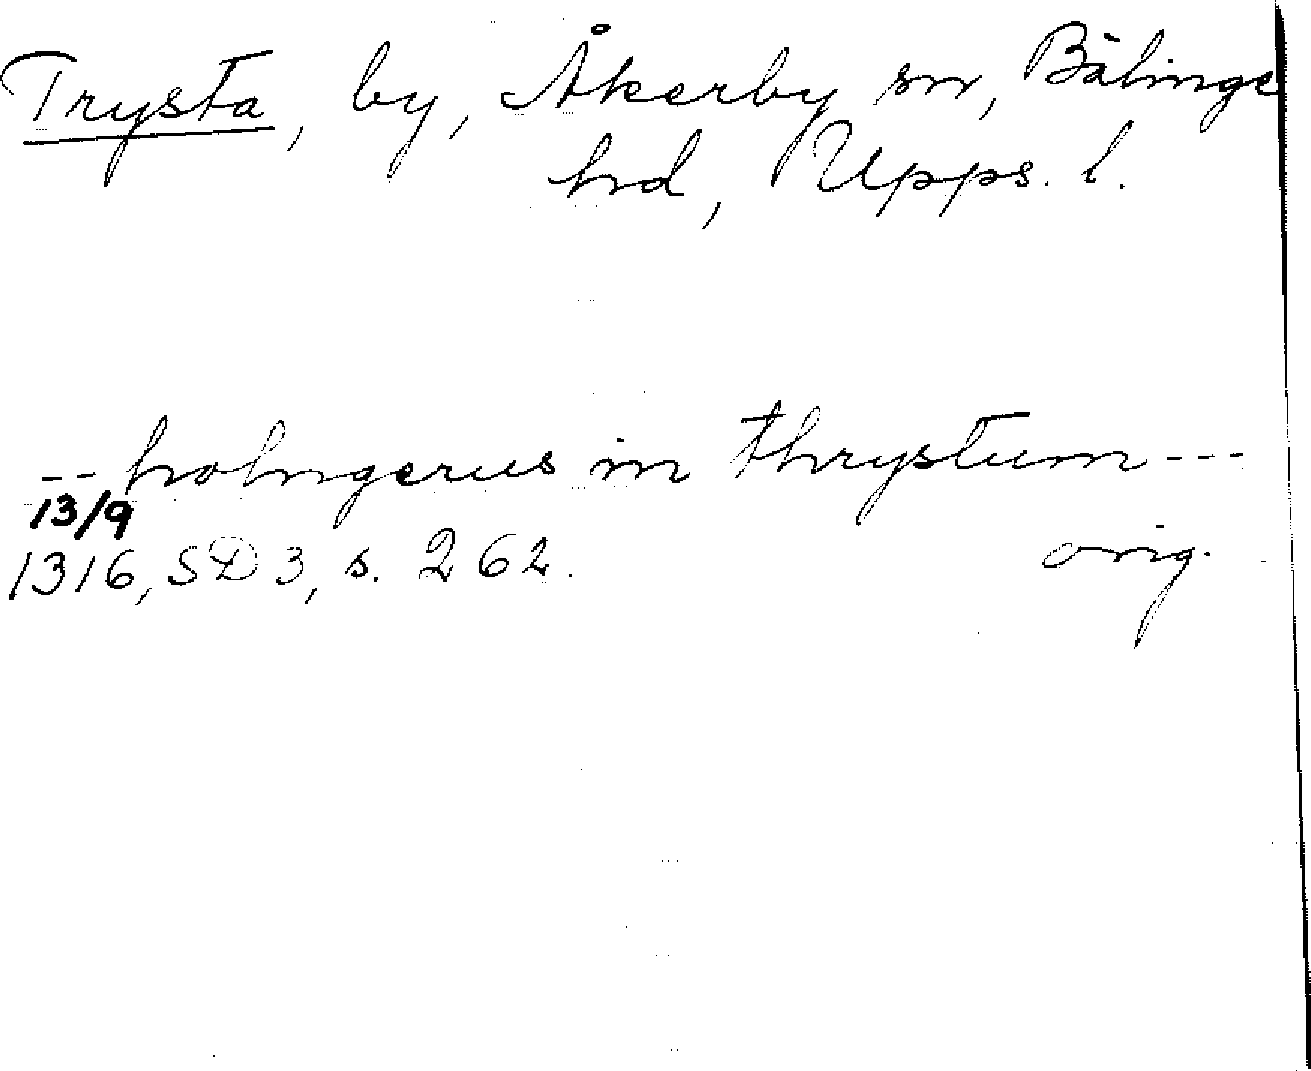 Trysta, by, Åkerby sn, Bälinge
hrd, Upps. l.
-- holmgerus in thrystum ---
13/9
1316, SD 3, s. 262. orig.